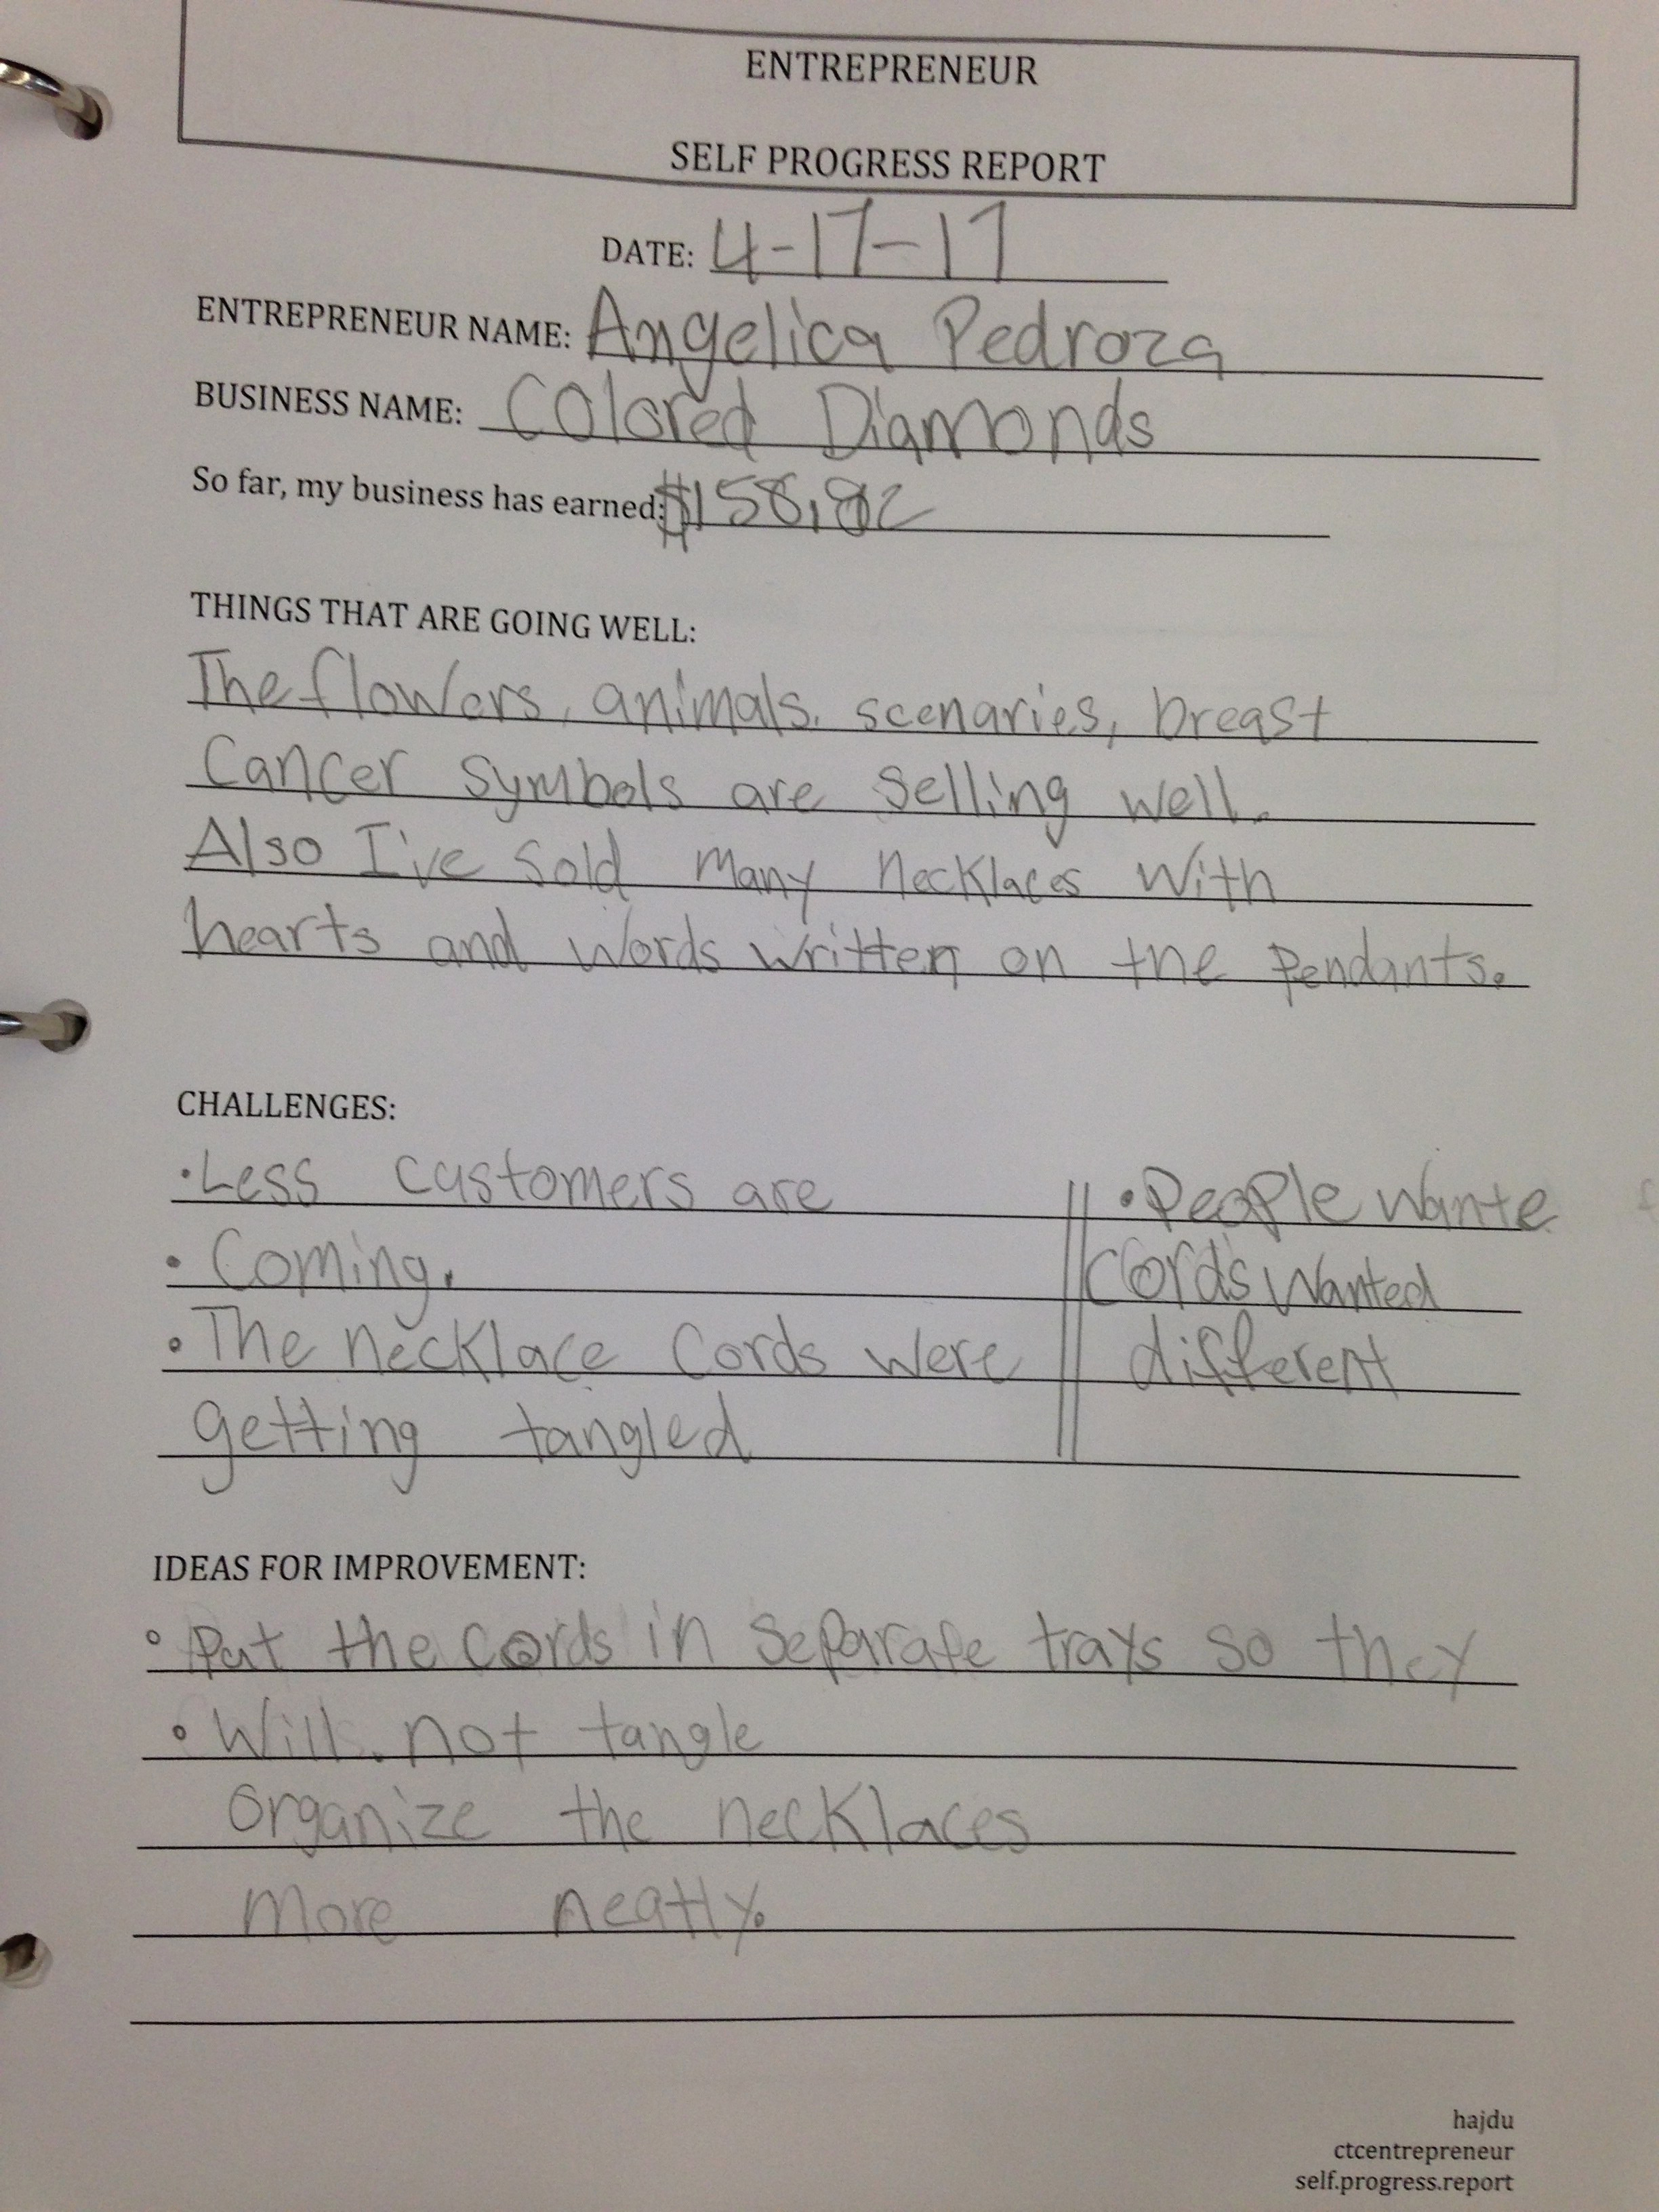 ENTREPRENEUR
SELF PROGRESS REPORT
DATE: 4-17-17
ENTREPRENEUR NAME: Angelica Pedroza
BUSINESS NAME: Colored Diamonds
So far, my business has earned: $158,82
THINGS THAT ARE GOING WELL:
The flowers, animals. scenaries, breast
Cancer symbols are selling well.
Also I've sold many necklaces with
hearts and words written on the pendants.
CHALLENGES:
•Less customers are
• Coming.
• The necklace cords were
getting tangled
• People wante
cords wanted
different
IDEAS FOR IMPROVEMENT:
• Put the cords in separate trays so they
• Will. not tangle
organize the necklaces
more neatly.
hajdu
ctcentrepreneur
self.progress.report